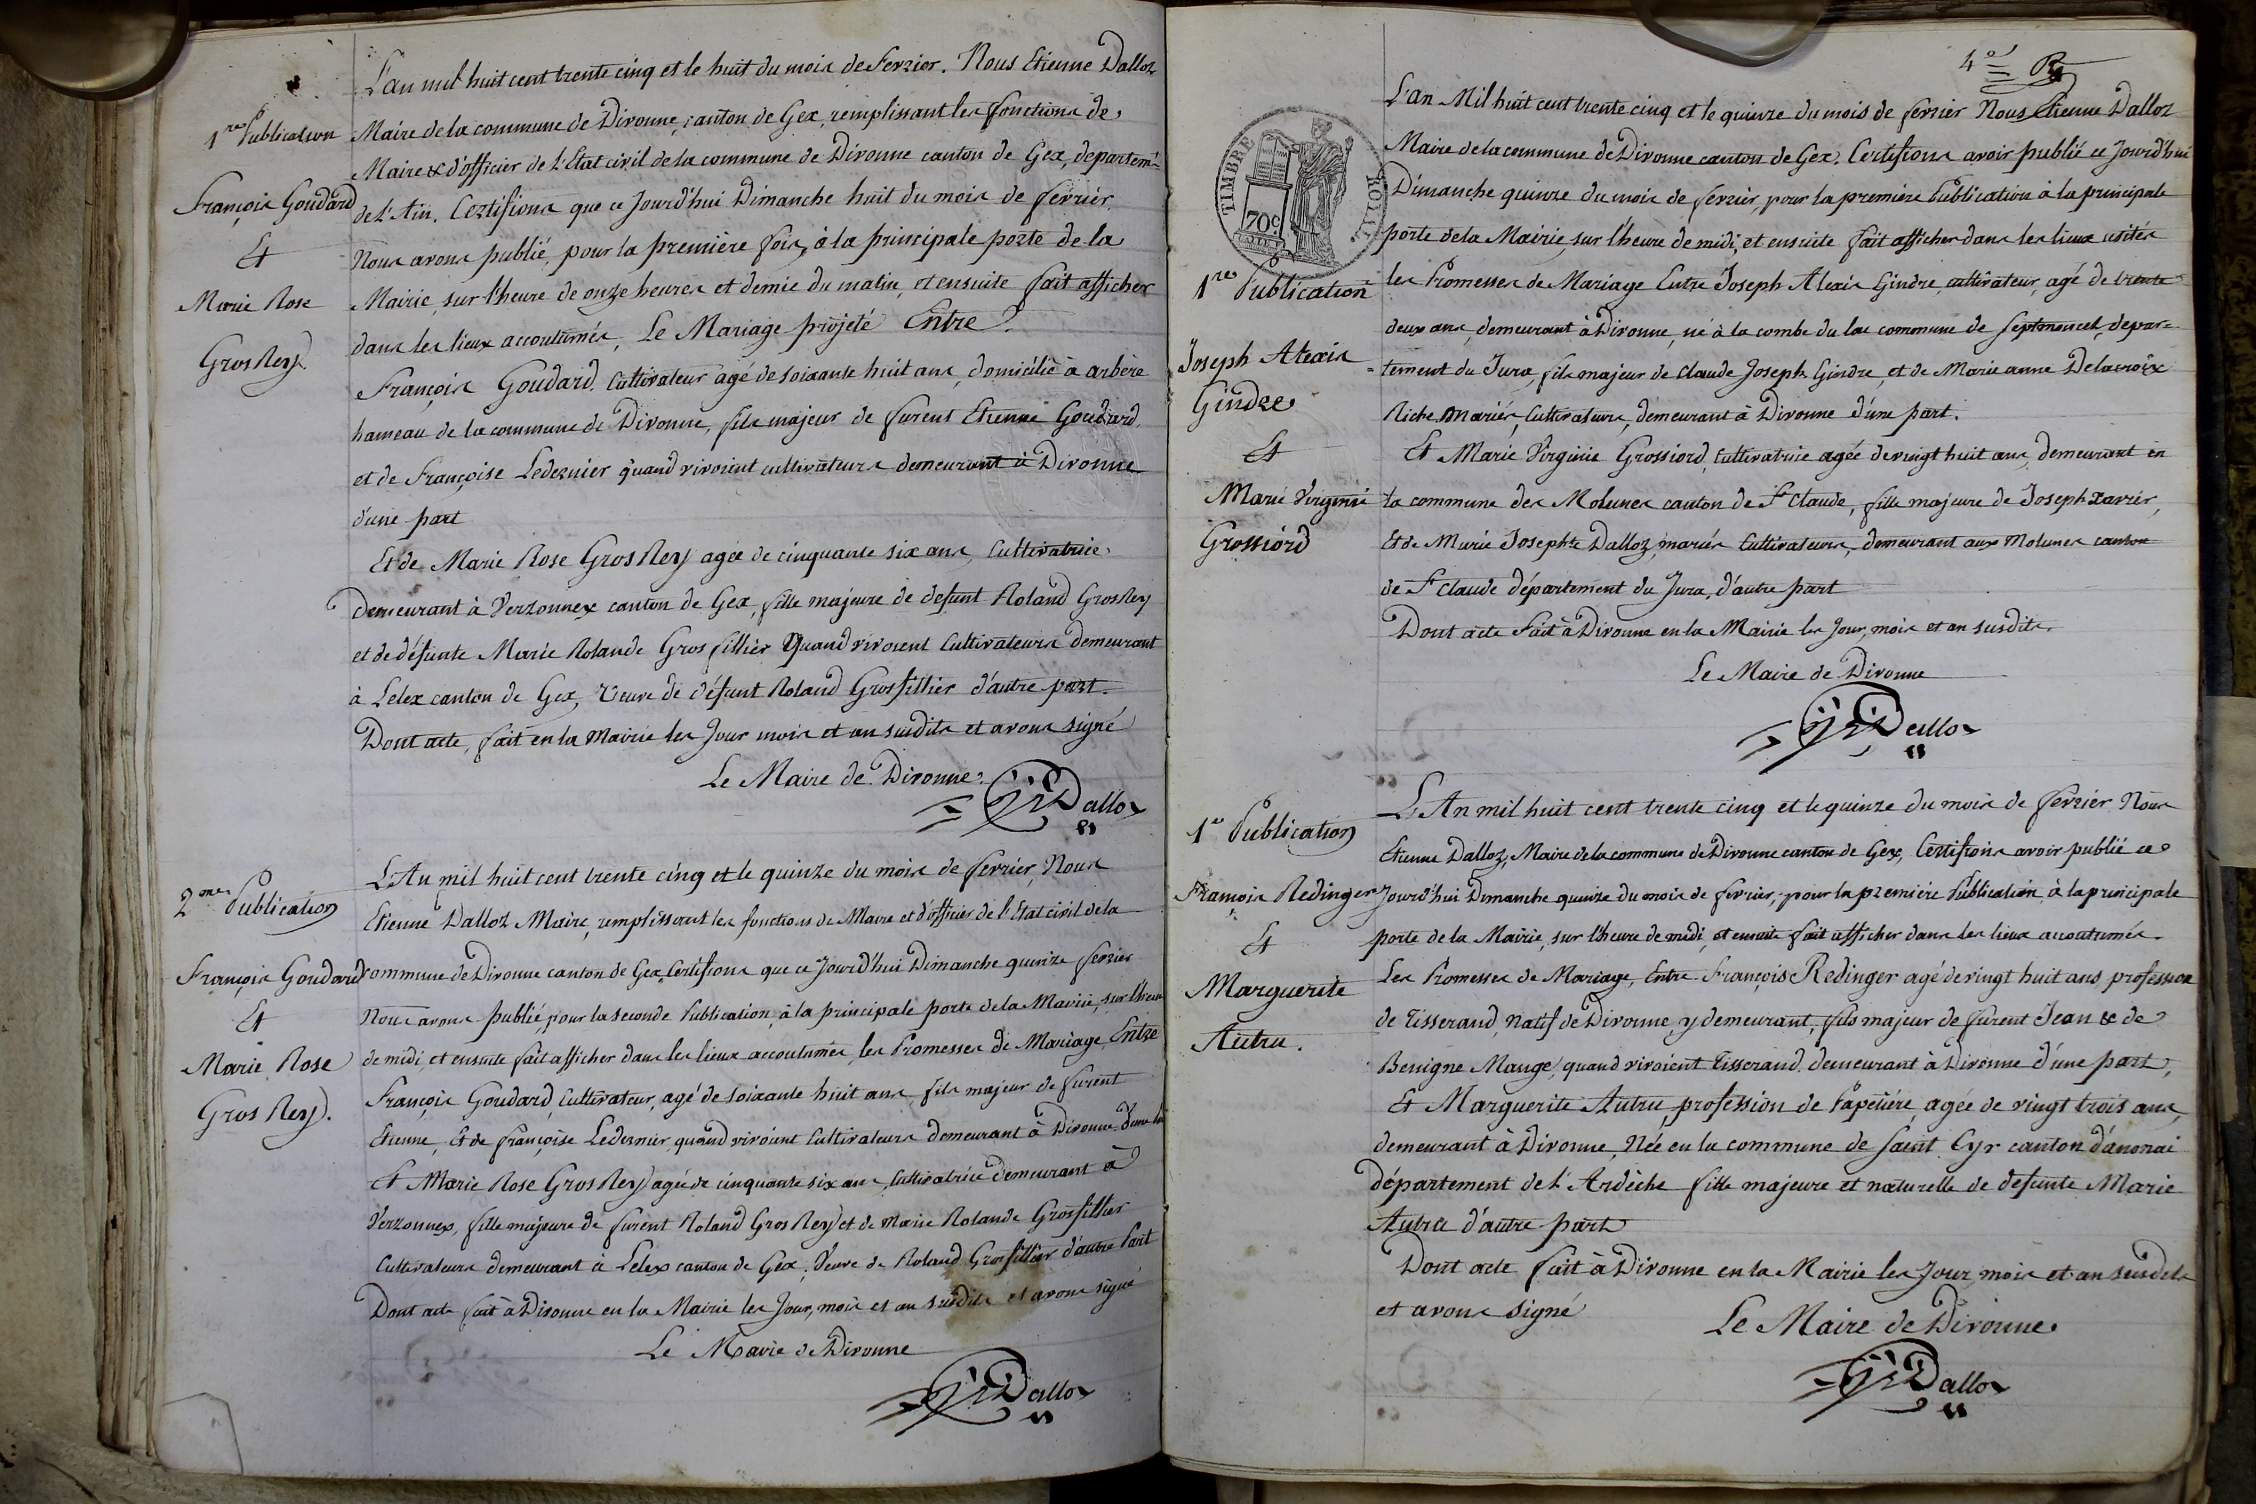 L'an mil huit cent trente cinq et le huit du mois de fevrier. Nous Etienne Dalloz
1re Publication
Maire de la commune de Divonne, canton de Gex, remplissant les fonctions de
Maire & d'officier de l'Etat civil de la commune de Divonne canton de Gex, departemt
François Goudard
de l'Ain. Certifions que ce Jourd'hui Dimanche huit du mois de fevrier
Et
Nous avons publié, pour la première fois, à la principale porte de la
Marie Rose
Mairie, sur l'heure de onze heures et demie du matin, et ensuite fait afficher
Gros Rey.
dans les lieux accoutumés, Le Mariage projeté Entre
François Goudard. Cultivateur agé de soixante huit ans, domicilié à arbère
hameau de la commune de Divonne, fils majeur de furent Etienne Goudard
et de Françoise Ledernier quand vivoient cultivateurs demeurant à Divonne
d'une part
Et de Marie Rose Gros Rey agée de cinquante six ans, Cultivatrice,
Demeurant à Verzonnex canton de Gex, fille majeure de defunt Roland Gros Rey
et de défunte Marie Rolande Gros fillier Quand vivoient Cultivateurs demeurant
à Lelex canton de Gex, Veuve de défunt Roland Grosfillier d'autre part.
Dont acte, fait en la Mairie les Jour mois et an susdits et avons signé
Le Maire de Divonne.
Dalloz
2me Publication
L'An mil huit cent trente cinq et le quinze du mois de fevrier, Nous
Etienne Dalloz Maire, remplissant les fonctions de Maire et d'officier de l'Etat civil de la
François Goudard
commune de Divonne canton de Gex, Certifions que ce Jourd'hui Dimanche quinze fevrier
Et
Nous avons publié, pour la seconde Publication, à la principale porte de la Mairie, sur l'heure
Marie Rose
de midi, et ensuite fait afficher dans les lieux accoutumés, les Promesses de Mariage, Entre
Gros Rey.
François Goudard, Cultivateur, agé de soixante huit ans, fils majeur de furent
Etienne, Et de françoise Ledernier, quand vivoient Cultivateurs demeurant à Divonne d'une
Et Marie Rose Gros Rey agée de cinquante six ans, Cultivatrice demeurant à
Verzonnex, fille majeure de furent Roland Gros Rey et de Marie Rolande Grosfillier
Cultivateurs demeurant à Lelex canton de Gex, Veuve de Roland Grosfillier d'autre Part
Dont acte fait à Divonne en la Mairie les Jour, mois et an susdits et avons signé
Le Mavie de Divonne
Dalloz
4e
L'an Mil huit cent trente cinq et le quinze du mois de fevrier Nous Etienne Dalloz
Maire de la commune de Divonne canton de Gex. Certifions avoir publié ce Jourd'hui
Dimanche quinze du mois de fevrier, pour la premiere Publication à la principale
TIMBRE ROYAL
70c
porte de la Mairie, sur l'heure de midi, et ensuite fait afficher dans les lieux usités
1re Publication
les Promesses de Mariage Entre Joseph Alexis Gindre, cultivateur, agé de trente
deux ans, demeurant à Divonne, né à la combe du lac commune de Septmoncel, depar=
Joseph Alexis
=tement du Jura, fils majeur de Claude Joseph Gindre, et de Marie anne Delacroix
Gindre
Riche, Mariés, Cultivateurs, demeurant à Divonne d'une part.
Et
Et Marie Virginie Grossiord, Cultivatrice agée de vingt huit ans, demeurant en
Marie Virginie
la commune des Molunes canton de St Claude, fille majeure de Joseph Xavier,
Grossiord
Et de Marie Josephte Dalloz, mariés Cultivateurs, demeurant aux Molunes canton
de St Claude département du Jura, d'autre part
Dont acte Fait à Divonne en la Mairie les Jour, mois et an susdits.
Le Maire de Divonne
Dalloz
L'An mil huit cent trente cinq et le quinze du mois de fevrier Nous
1e Publication
Etienne Dalloz, Maire de la commune de Divonne canton de Gex, Certifions avoir publié ce
François Redinger
Jourd'hui Dimanche quinze du mois de fevrier, pour la première Publication, à la principale
Et
porte de la Mairie, sur l'heure de midi, et ensuite fait afficher dans les lieux accoutumés.
Marguerite
Les Promesses de Mariage, Entre François Redinger agé de vingt huit ans, profession
Autru.
de Tisserand, Natif de Divonne, y demeurant, fils majeur de furent Jean & de
Benigne Mange, quand vivoient Tisserand, demeurant à Divonne d'une part,
Et Marguerite Autru, profession de Papetière, agée de vingt trois ans,
demeurant à Divonne, Née en la commune de Saint Cyr canton d'anonai
département de l'Ardèche fille majeure et naturelle de defunte Marie
Autru d'autre part
Dont acte fait à Divonne en la Mairie les Jour, mois et an susdits
et avons signé
Le Maire de Divonne.
Dalloz